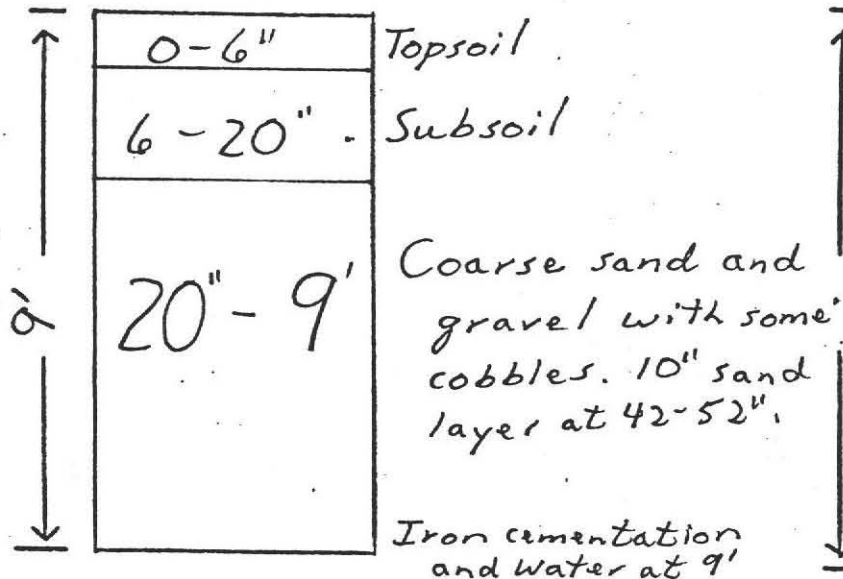 0-6" Topsoil
6-20" Subsoil
9'
20"-9'
Coarse sand and
gravel with some
cobbles. 10" sand
layer at 42-52".
Iron cementation
and water at 9'